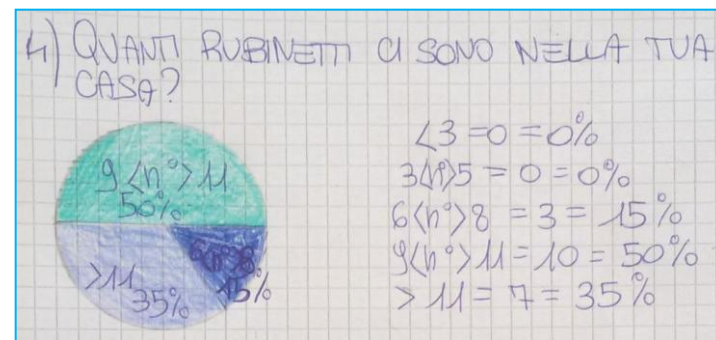 4) QUANTI RUBINETTI CI SONO NELLA TUA
CASA?
9<n°>11
50%
6<n°>8
15%
>11
35%
<3 = 0 = 0%
3<n°>5 = 0 = 0%
6<n°>8 = 3 = 15%
9<n°>11 = 10 = 50%
> 11 = 7 = 35%